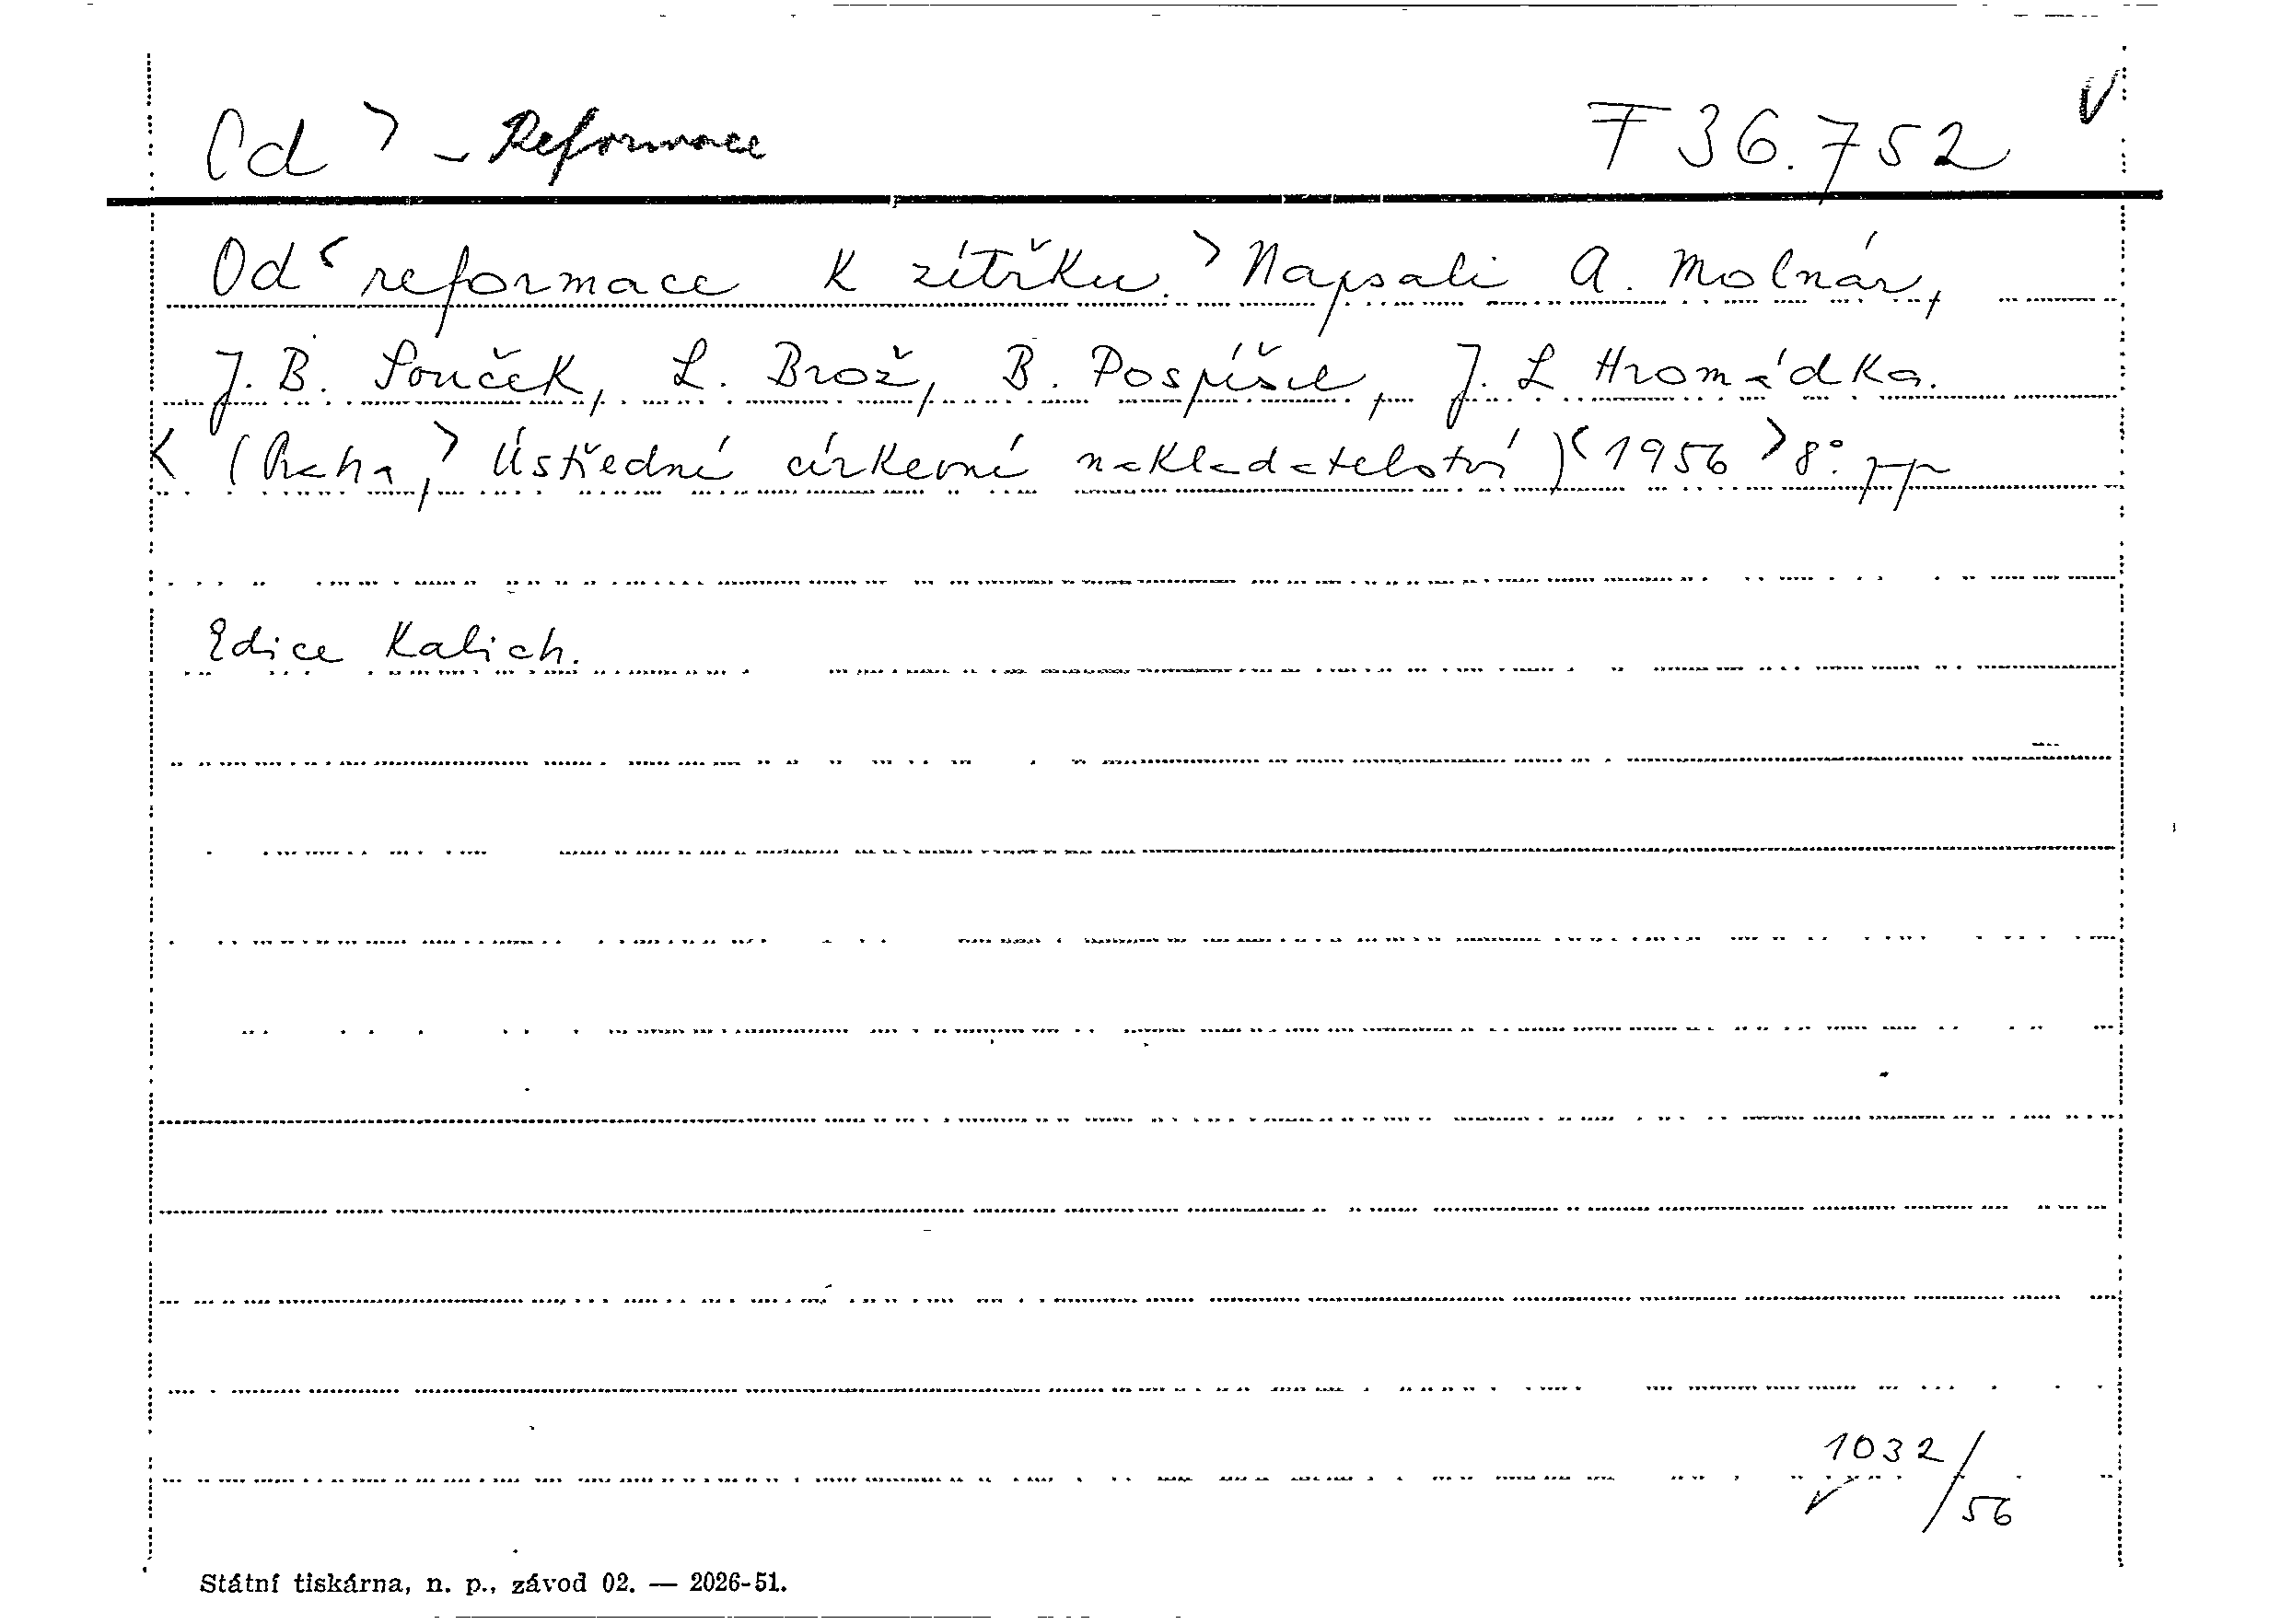 Od > - Reformace F 36.752 V
Od < reformace k zítřku. > Napsali A. Molnár,
J. B. Souček, L. Brož, B. Pospíšil, J. L Hromádka.
< (Praha, > Ústřední církevní nakladatelství) < 1956 > 8°. pp
Edice Kalich.
1032/56
Státní tiskárna, n. p., závod 02. — 2026-51.